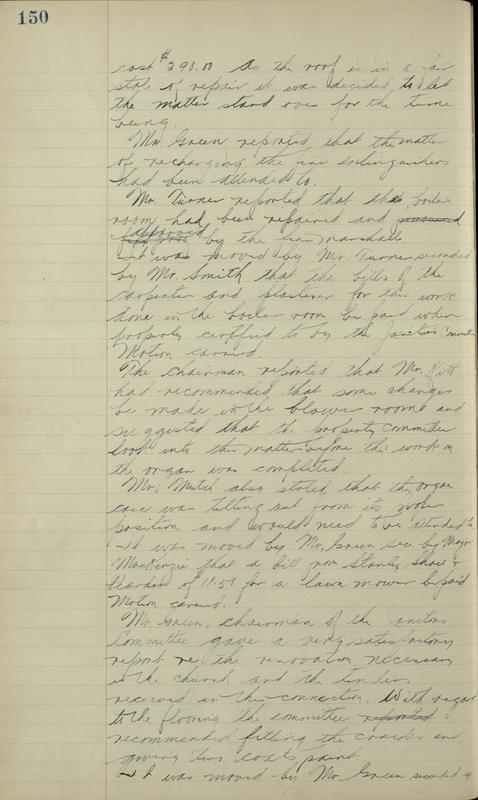 150
cost $290.00 As the roof is in a fair
state of repair it was decided to let
the matter stand over for the time
being.
Mr. Green reported that the matter
of recharging the fire extinguishers
had been attended to.
Mr. Turner reported that the boiler
room had been repaired and
approved by the fire marshall.
It was moved by Mr. Turner seconded
by Mr. Smith that the bills of the
carpenter and plasterer for this work
done in the boiler room be paid when
properly certified to by the Janitors Committee
Motion carried.
The chairman reported that Mr.
had recommended that some changes
be made in the blower room and
suggested that the property committee
look into this matter before the work on
the organ was completed.
Mr. Mutch also stated that the organ
case was tilting out from its
position and would need to be attended to
It was moved by Mr. Green sec. by Major
Mackenzie that a bill from Stanley Shaw &
Peardon of 11.50 for a lawn mower be paid
Motion carried.
Mr. Green, chairman of the Janitors
Committee gave a very satisfactory
report re the renovation necessary
in the church and the tenders
received in this connection. With regard
to the flooring the committee reported
recommended filling the cracks and
giving two coats paint.
It was moved by Mr. Green seconded by